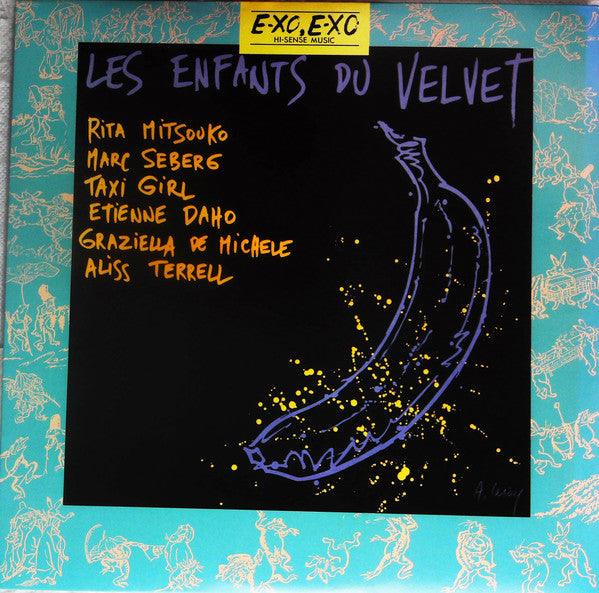 E-XO, E-XO
HI-SENSE MUSIC
LES ENFANTS DU VELVET
RITA MITSOUKO
MARC SEBERG
TAXI GIRL
ETIENNE DAHO
GRAZIELLA DE MICHELE
ALISS TERRELL